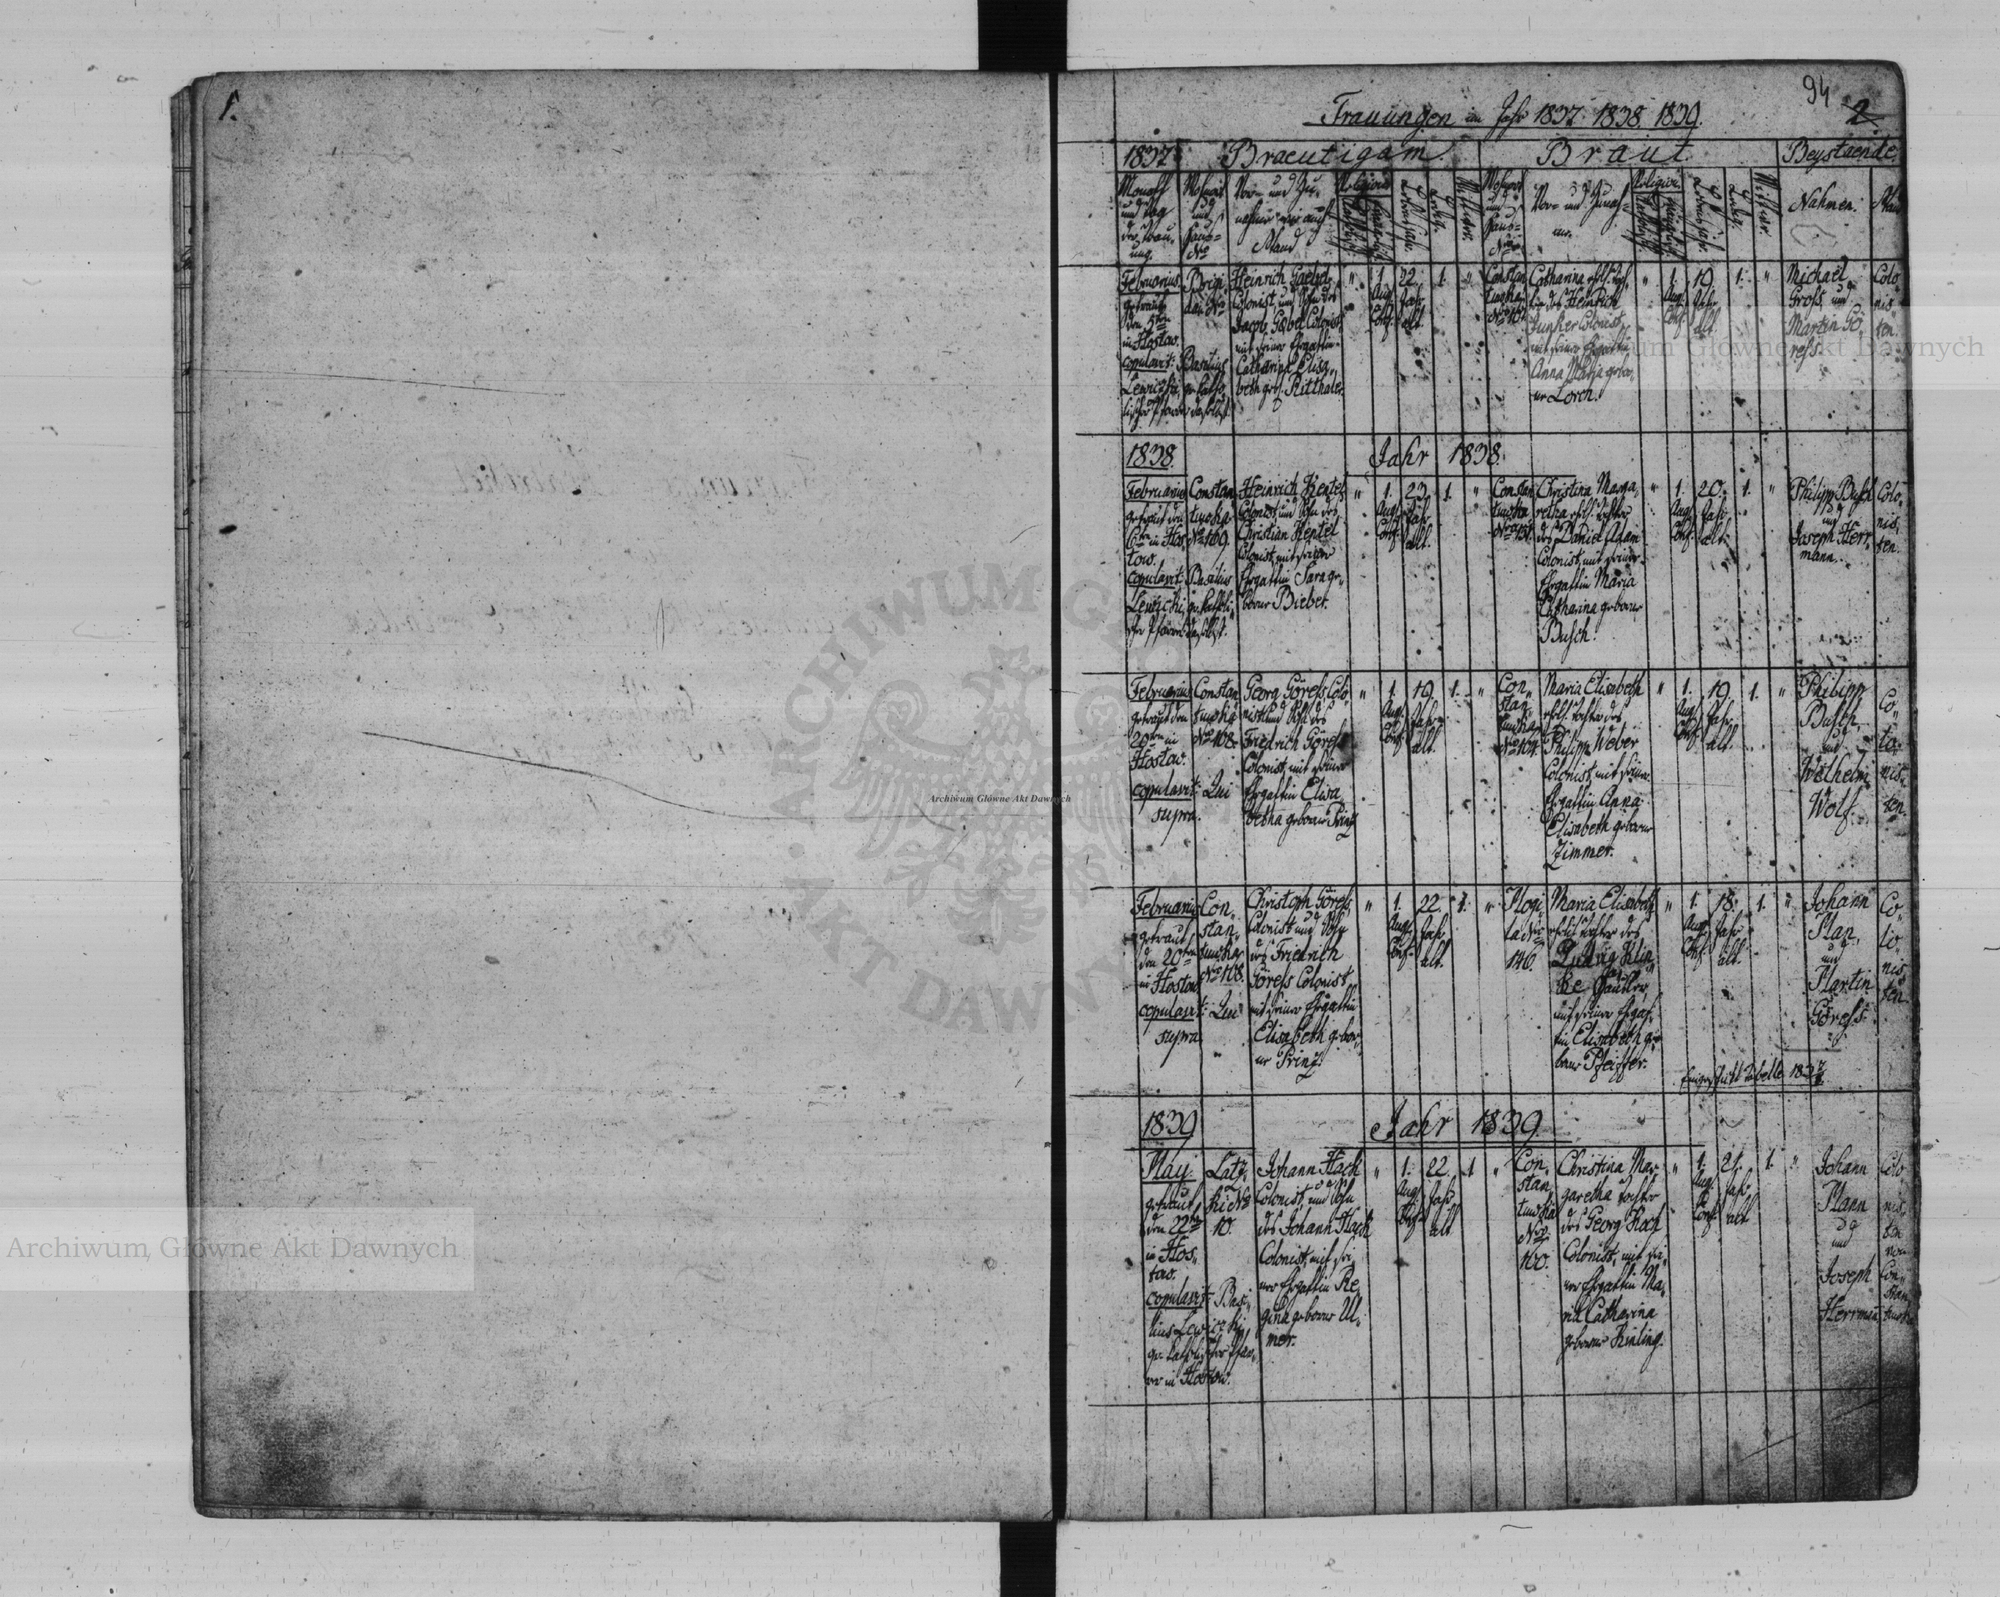 1.
94
2
Trauungen im Jahr 1837. 1838. 1839.
1837 Braeutigam. Braut. Beystaende.
Monath und Tag der Trauung.
Wohnort und Haus=Nro
Vor= und Zunahme wie auch Stand
Religion
Katholisch
Lebensjahr.
Ledig.
Wittwer.
Wohnort und Haus=Nro
Vor= und Zunahme.
Religion.
Lebensjahr.
Ledig.
Wittwe.
Nahmen.
Stand
Februarius
getraut
den 5ten
in Hostow.
copulavit: Basilius
Lewicki, gr. katho
lischer Pfarrer daselbst.
Brigi
dau Nro
Heinrich Gaebel
Colonist, und Sohn des
Jacob Gäbel Colonist,
mit seiner Ehegattin
Catharina Elisa„
beth geb. Ritthaler.
" 1. Aug. Conf. 22. Jahr alt. 1. "
Constan
tinska
Nro 161
Catharina ehel. Toch„
ter des Heinrich
Junker Colonist,
mit seiner Ehegattin
Anna Maria gebor„
ne Lorch.
" 1. Aug. Conf. 19. Jahr alt. 1. "
Michael
Groß und
Martin Gö„
reß.
Colo
nis„
ten.
1838. Jahr 1838.
Februarius
getraut den
6ten in Hos„
tow.
copulavit: Basilius
Lewicki, gr. katholi„
scher Pfarrer daselbst.
Constan
tinska
Nro 169.
Heinrich Hentel
Colonist, und Sohn des
Christian Hentel
Colonist, mit seiner
Ehegattin Sara ge„
borne Bieber.
" 1. Aug. Conf. 23. Jahr alt. 1. "
Constan
tinska
Nro 151.
Christina Marga„
retha ehel. Tochter
des Daniel Adam
Colonist, mit seiner
Ehegattin Maria
Catharina geborne
Busch.
" 1. Aug. Conf. 20. Jahr alt. 1. "
Philipp Busch
und
Joseph Herr„
mann.
Colo„
nis„
ten.
Februarius
getraut den
20ten in
Hostow.
copulavit: Qui
supra.
Constan
tinska
Nro 168.
Georg Göreß Colo„
nist und Sohn des
Friedrich Göreß
Colonist, mit seiner
Ehegattin Elisa
betha geborne Prinz
" 1. Aug. Conf. 19. Jahr alt. 1. "
Con„
stan„
tinska
Nro 164.
Maria Elisabeth
ehel. Tochter des
Philipp Weber
Colonist, mit seiner
Ehegattin Anna
Elisabeth geborne
Zimmer.
" 1. Aug. Conf. 19. Jahr alt. 1. "
Philipp
Busch,
und
Wilhelm
Wolf.
Co„
lo„
nis„
ten.
Februarius
getraut
den 20ten
in Hostow
copulavit: Qui
supra
Con„
stan„
tinska
Nro 168.
Christoph Göreß
Colonist und Sohn
des Friedrich
Göreß Colonist
mit seiner Ehegattin
Elisabeth gebor„
ne Prinz.
" 1. Aug. Conf. 22. Jahr alt. 1. "
Mogi„
la Nro
146.
Maria Elisabeth
ehel. Tochter des
Ludwig Klin„
ke
mit seiner Ehegat„
tin Elisabeth ge„
borne Pfeiffer.
" 1. Aug. Conf. 18. Jahr alt. 1. "
Johann
Man,
und
Martin
Göreß.
Co„
lo„
nis„
ten.
1839 Jahr 1839.
May.
getraut
den 22ten
in Hos„
tow.
copulavit: Basi„
lius Lewicki
gr. katholischer Pfar„
rer in Hostow.
Laty
ki Nro
10.
Johann Hack
Colonist, und Sohn
des Johann Hack
Colonist, mit sei„
ner Ehegattin Re„
gina geborne Ul„
mer.
" 1. Aug. Conf. 22. Jahr alt. 1 "
Con„
stan
tinska
Nro
160.
Christina Mar„
garetha Tochter
des Georg Koch
Colonist, mit sei„
ner Ehegattin Ma„
ria Catharina
geborne Kinling.
" 1. Aug. Conf. 21. Jahr alt. 1. "
Johann
Mann
und
Joseph
Herrman
Colo
nis„
ten
von
Con„
stan
tinska
Archiwum Główne Akt Dawnych
ARCHIWUM GŁÓWNE AKT DAWNYCH
Archiwum Główne Akt Dawnych
Archiwum Główne Akt Dawnych